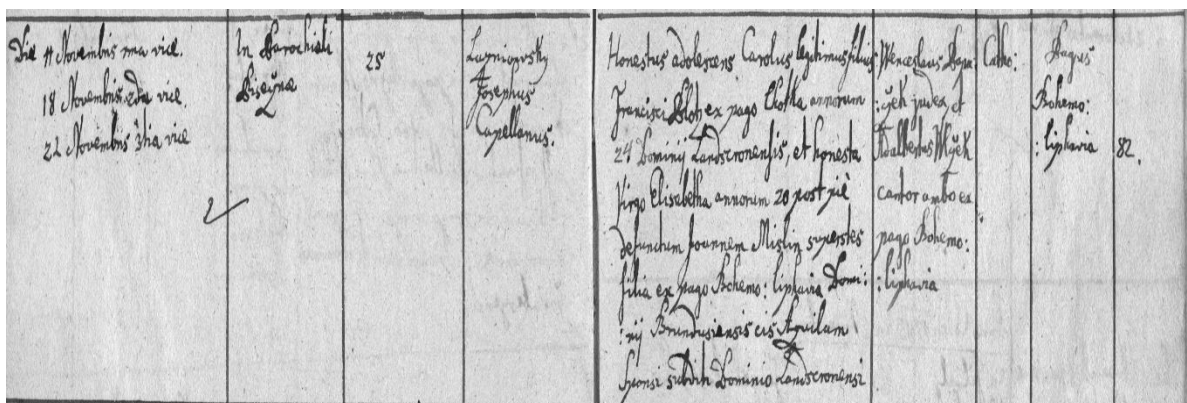 Die 11 Novembris 1ma vice.
18 Novembris 2da vice.
22 Novembris 3tia vice
In Parochiali
25
Josephus
Capellanus.
Honestus adolescens Carolus legitimus filius
Francisci ex pago annorum
24 Dominij Landscronensis, et honesta
Virgo Elisabetha annorum 20 post piè
defunctum Joannem Mislin superstes
filia ex pago Bohemo: liphavia Domi:
:nij Brandusiensis cis Aquilam
Sponsi subditi Dominio Landscronensi
Wenceslaus
judex, et
Adalbertus
cantor ambo ex
pago Bohemo:
:liphavia
Catho:
Pagus
Bohemo:
:liphavia
82.